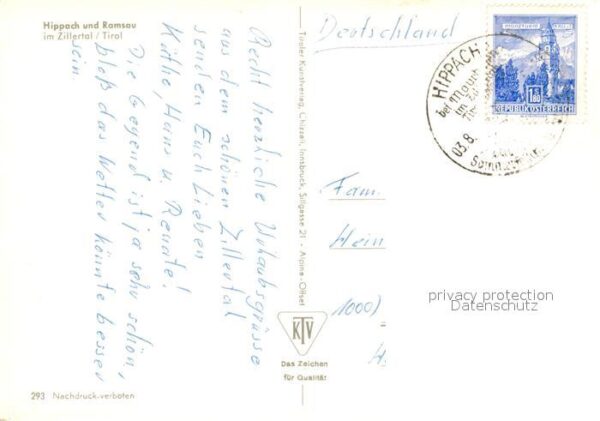 Hippach und Ramsau
im Zillertal / Tirol
Recht herzliche Urlaubsgrüsse
aus dem schönen Zillertal
senden Euch Lieben
Käthe, Hans u. Renate!
Die Gegend ist ja sehr schön,
bloß das Wetter könnte besser
sein.
293 Nachdruck verboten
Tiroler Kunstverlag, Chizzali, Innsbruck, Sillgasse 21 - Alpine-Offset
KTV
Das Zeichen
für Qualität
Deutschland
HIPPACH
bei
im
03.8.
1.80
REPUBLIK ÖSTERREICH
Fam.
Hein
1000)
H
privacy protection
Datenschutz